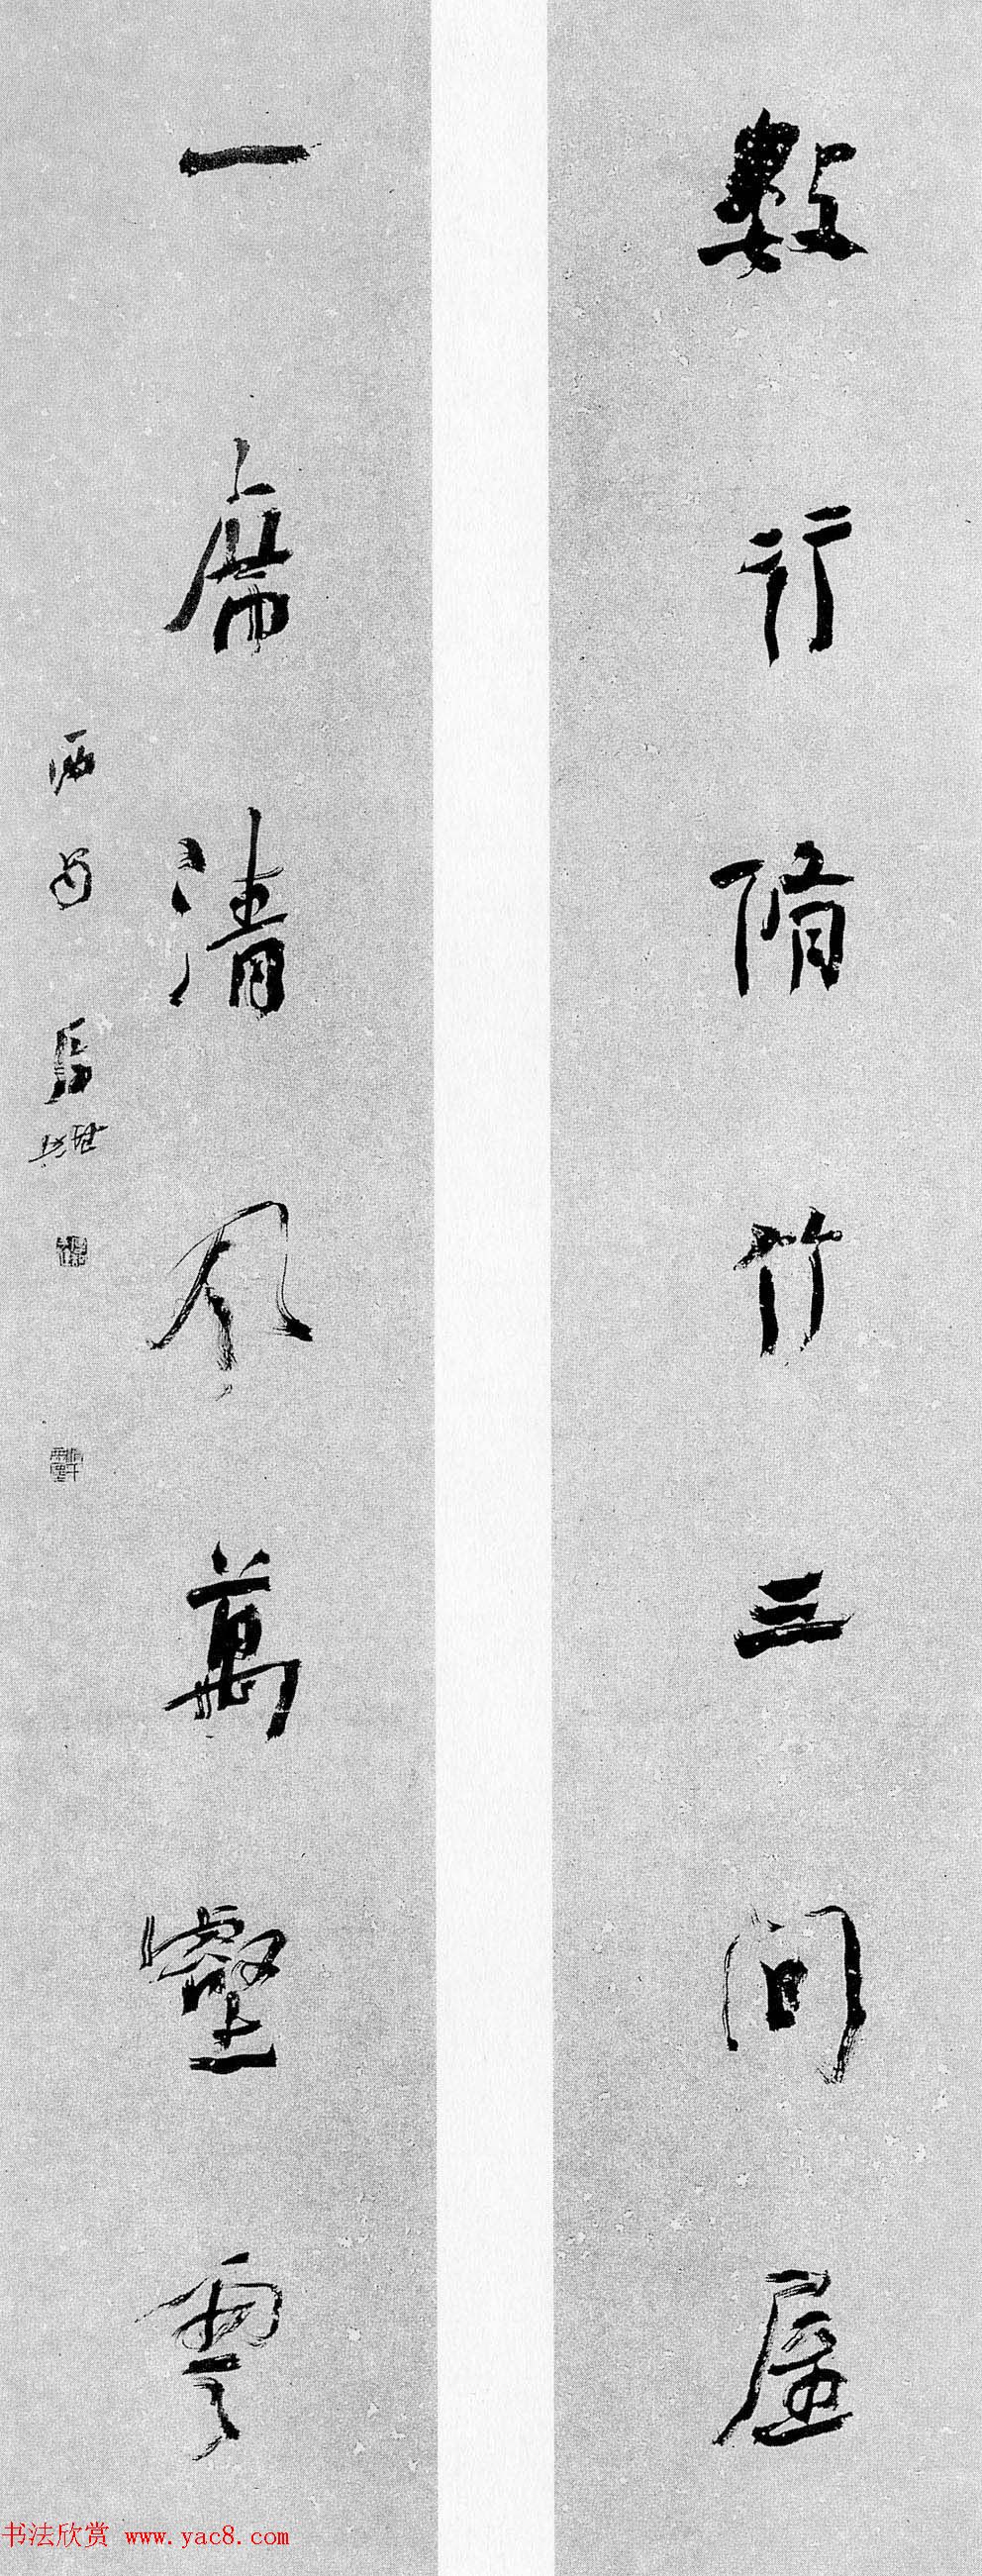 數行脩竹三间屋
一席清風萬壑雲
西安
书法欣赏 www.yac8.com